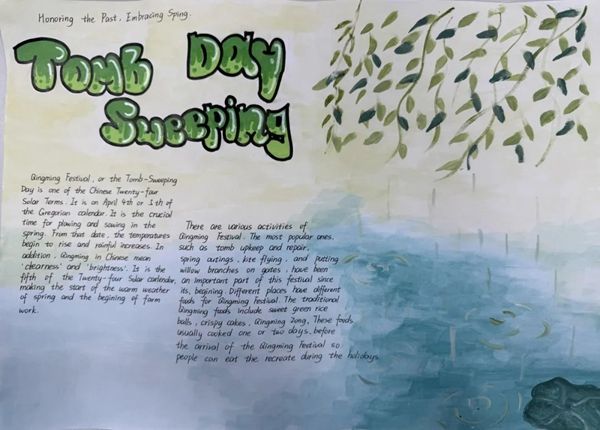 Honoring the Past, Embracing Sping.
Tomb Day
Sweeping
Qingming Festival, or the Tomb-Sweeping
Day is one of the Chinese Twenty-four
Solar Terms. It is on April 4th or 5th of
the Gregorian calendar. It is the crucial
time for plowing and sowing in the
spring. From that date, the temperatures
begin to rise and rainful increases. In
addition, Qingming in Chinese mean
'clearness' and 'brightness'. It is the
fifth of the Twenty-four Solar calendar,
making the start of the warm weather
of spring and the begining of farm
work.
There are various activities of
Qingming Festival. The most popular ones,
such as tomb upkeep and repair,
spring outings, kite flying, and putting
willow branches on gates, have been
an important part of this festival since
its begining. Different places have different
foods for Qingming Festival. The traditional
Qingming foods include sweet green rice
balls, crispy cakes, Qingming Zong. These foods
usually cooked one or two days before
the arrival of the Qingming Festival so
people can eat the recreate during the holidays.